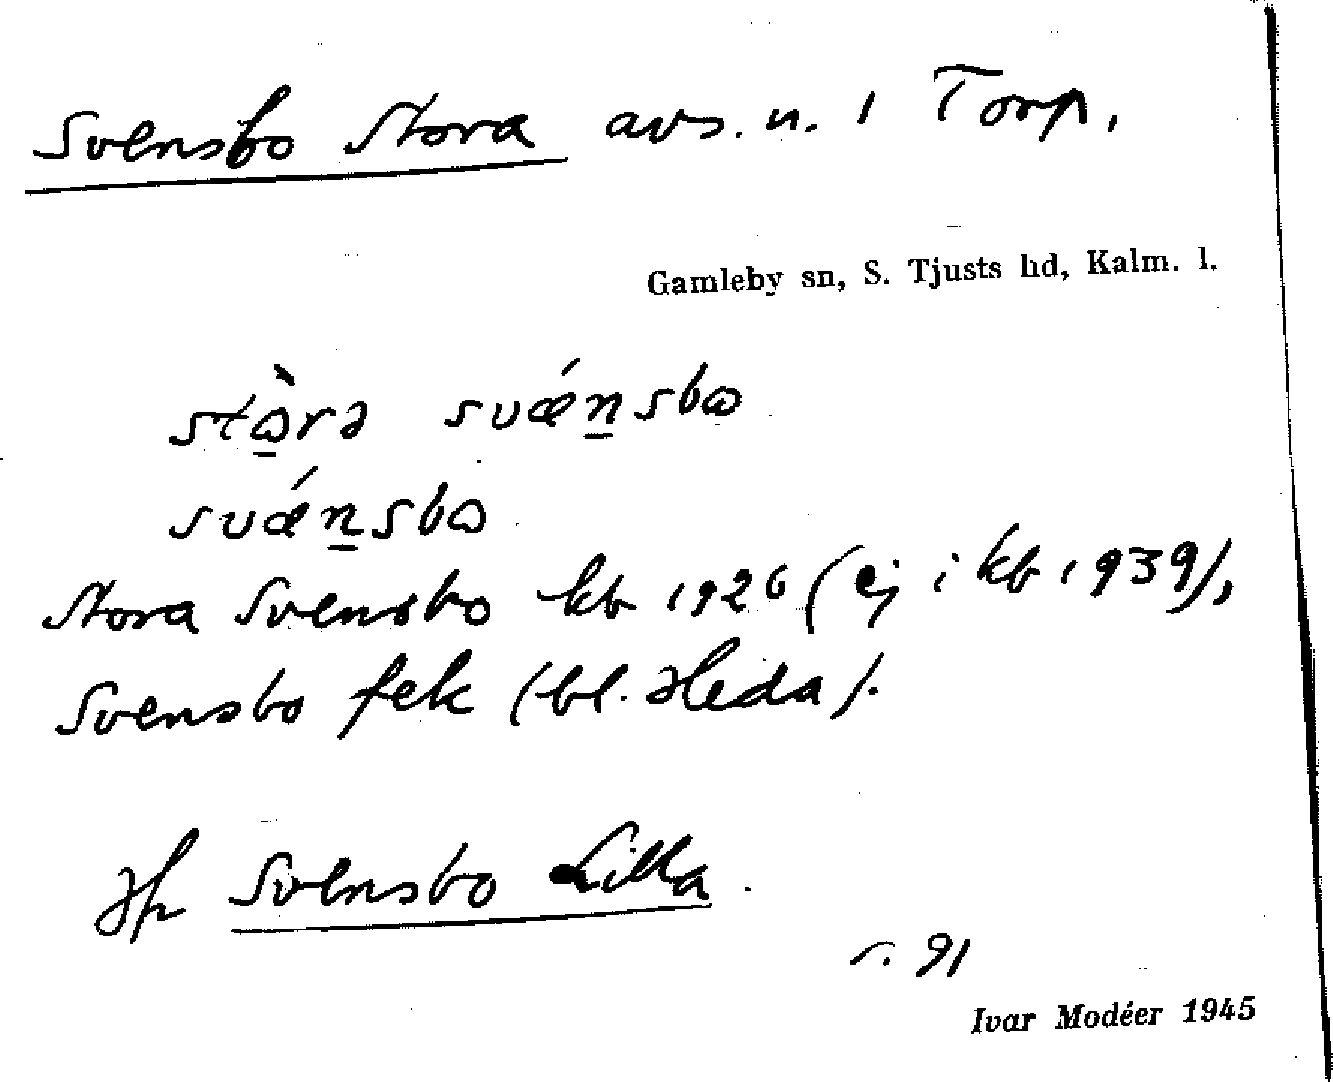 Svensbo Stora avs. u. i Torp,
Gamleby sn, S. Tjusts hd, Kalm. l.
stɷ̀rə svǽnsbɷ
svǽnsbɷ
Stora Svensbo kb 1926 (ej i kb 1939),
Svensbo fek (bl. Heda).
Jfr Svensbo Lilla.
s. 91
Ivar Modéer 1945